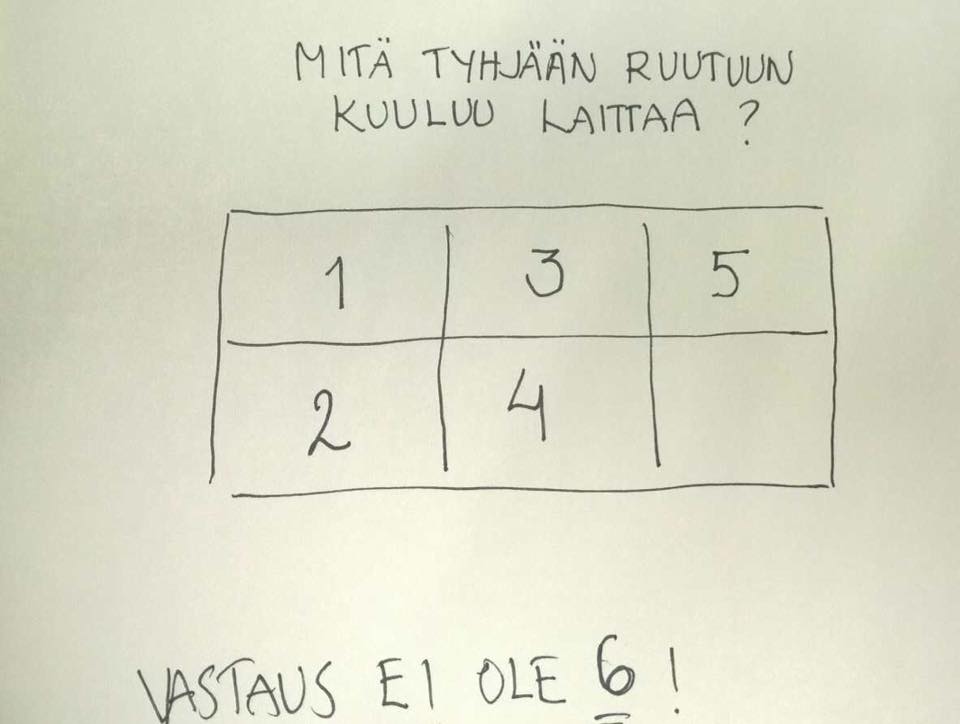 MITÄ TYHJÄÄN RUUTUUN
KUULUU LAITTAA ?
1 3 5
2 4
VASTAUS EI OLE 6 !